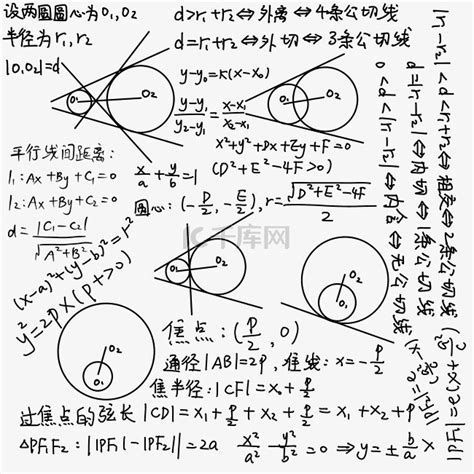 设两圆圆心为O₁,O₂
半径为r₁,r₂
|O₁O₂|=d
d>r₁+r₂⇔外离⇔4条公切线
d=r₁+r₂⇔外切⇔3条公切线
|r₁-r₂|<d<r₁+r₂⇔相交⇔2条公切线
d=|r₁-r₂|⇔内切⇔1条公切线
0<d<|r₁-r₂|⇔内含⇔无公切线
O₁ O₂
O₁ O₂
y-y₀=K(x-x₀)
y-y₁/y₂-y₁=x-x₁/x₂-x₁
x²+y²+Dx+Ey+F=0
(D²+E²-4F>0)
平行线间距离:
l₁:Ax+By+C₁=0
l₂:Ax+By+C₂=0
d=|C₁-C₂|/√A²+B²
x/a+y/b=1
圆心:(-D/2,-E/2),r=√D²+E²-4F/2
(x-a)²+(y-b)²=r²
y²=2px(p>0)
O₁ O₂
O₁ O₂
O₁ O₂
千库网
焦点:(p/2,0)
通径|AB|=2p,准线:x=-p/2
焦半径:|CF|=x₀+p/2
过焦点的弦长|CD|=x₁+p/2+x₂+p/2=x₁+x₂+p
△PF₁F₂:||PF₁|-|PF₂||=2a
x²/a²-y²/b²=0⇒y=±b/a x